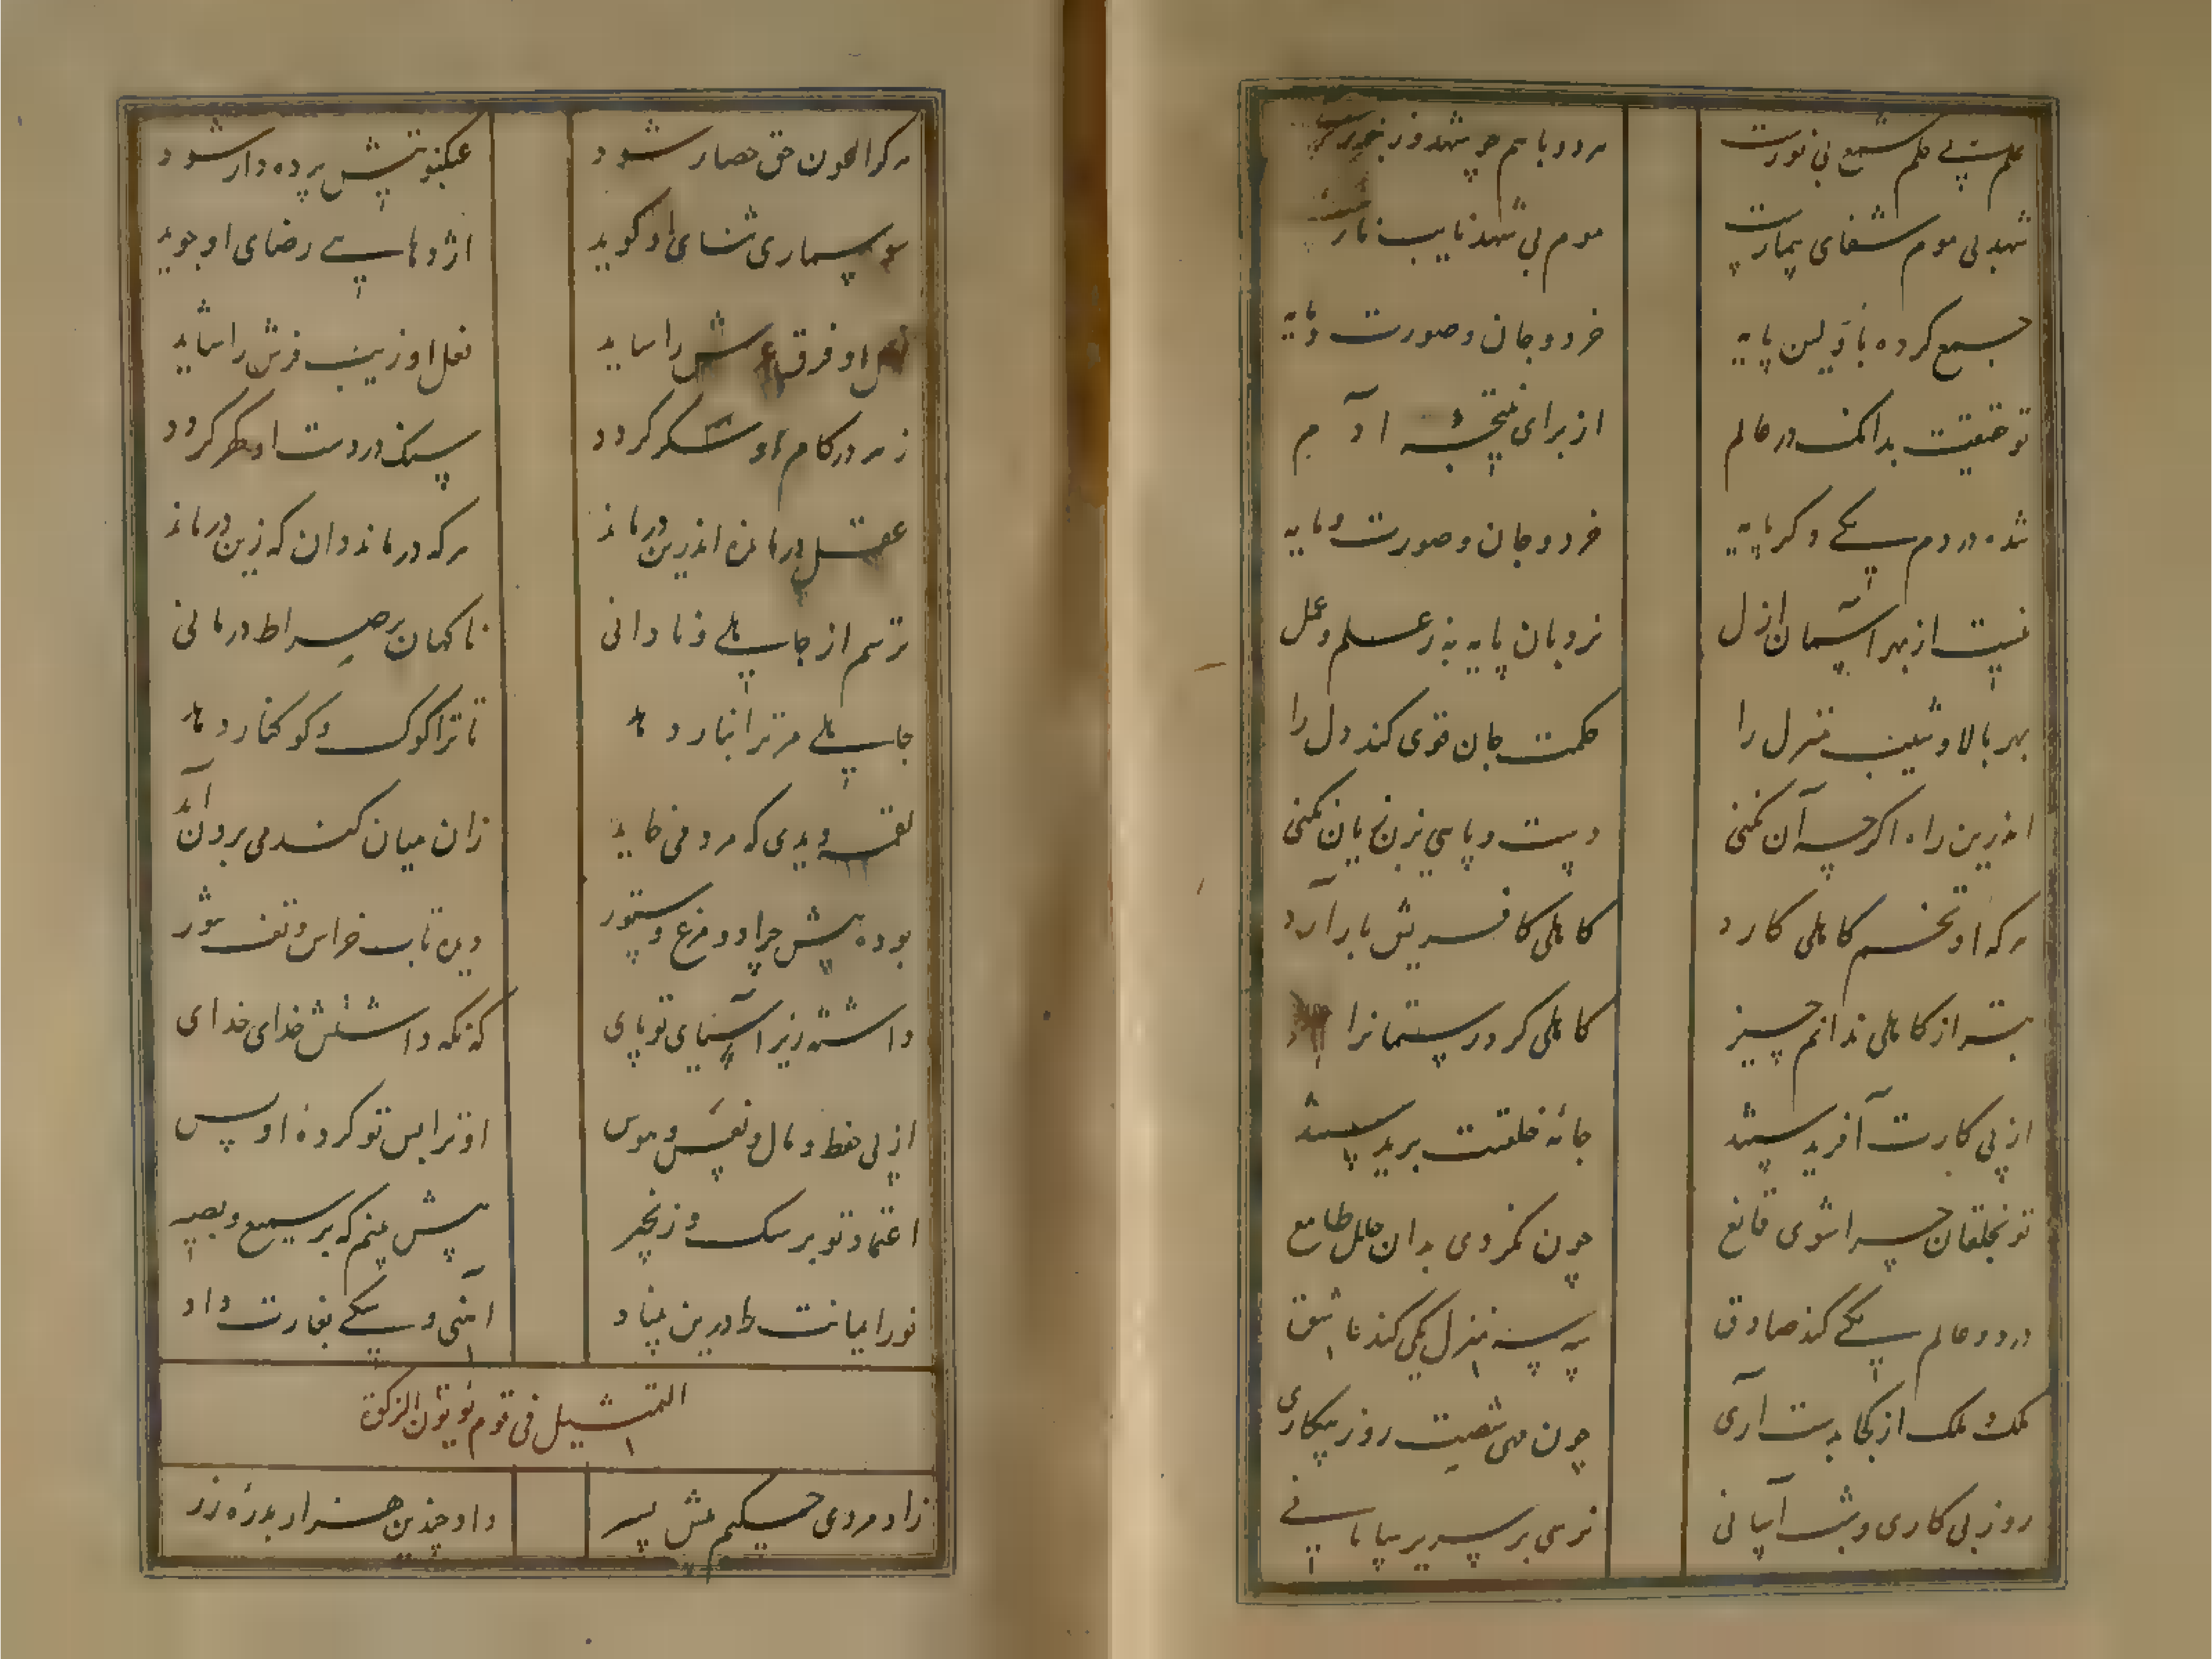 علم بی حلم شمع بی نورست
هر دو باهم چو شهد زنبورست
شهد بی موم شفای بیمارست
موم بی شهد نایب نارست
جمع کرده باولین پایه
خرد و جان و صورت و مایه
تو حقیقت بدانک در عالم
از برای نتیجه آدم
شده در دم یکی و کر مایه
خرد و جان و صورت و مایه
نیست از بهر آسمان ازل
نردبان پایه به ز علم و عمل
بهر بالا و شیب منزل را
حکمت جان قوی کند دل را
اندرین راه اکرچه آن نکنی
دست و پایی بزن زیان نکنی
هرکه او تخم کاهلی کارد
کاهلی کافریش بار آرد
بتر از کاهلی ندانم چیز
کاهلی کرد رستمانرا
از پی کارت آفریدستند
جامه خلقتت بریدستند
تو بخلقان چرا شوی قانع
چون نکردی بدان حلل طامع
در دو عالم یکی کند صادق
به سه منزل یکی کند عاشق
ملک و ملک از کجا بدست آری
چون مهی شصت روز بیکاری
روز بی کاری و شب آسانی
نرسی بر سریر ساسانی
هرکرا عون حق حصار شود
عنکبوتیش پرده دار شود
سوسماری ثنای او کوید
اژدهایی رضای او جوید
نعل او فرق عرش را ساید
لعل او زیب فرش را شاید
زهر در کام او شکر کردد
سنک در دست او کهر کردد
عقل درمانده اندرین درماند
هرکه درماند دان که زین درماند
ترسم از جاهلی و نادانی
ناکهان بر صراط درمانی
جاهلی مر ترا بنار دهد
تا ترا کوک و کوکنار دهد
لقمه دیدی که مرد می خاید
زان میان کندمی برون آید
بوده پیش جراد و مرغ و ستور
دیده تاب خراس و تف تنور
داشته زیر آسیای تو پای
که نکه داشتش خدای خدای
از پی حفظ و مال و نفس و هوس
او ترا بس تو کرده او بس
اعتماد تو بر سک و زنجیر
بیش بینم که بر سمیع و بصیر
نور ایمانت را درین بنیاد
آهنی و سکی بغارت داد
التمثیل فی قوم یوتون الزکوة
زاد مردی حکیم پیش پسر
داد چندین هزار بدره زر